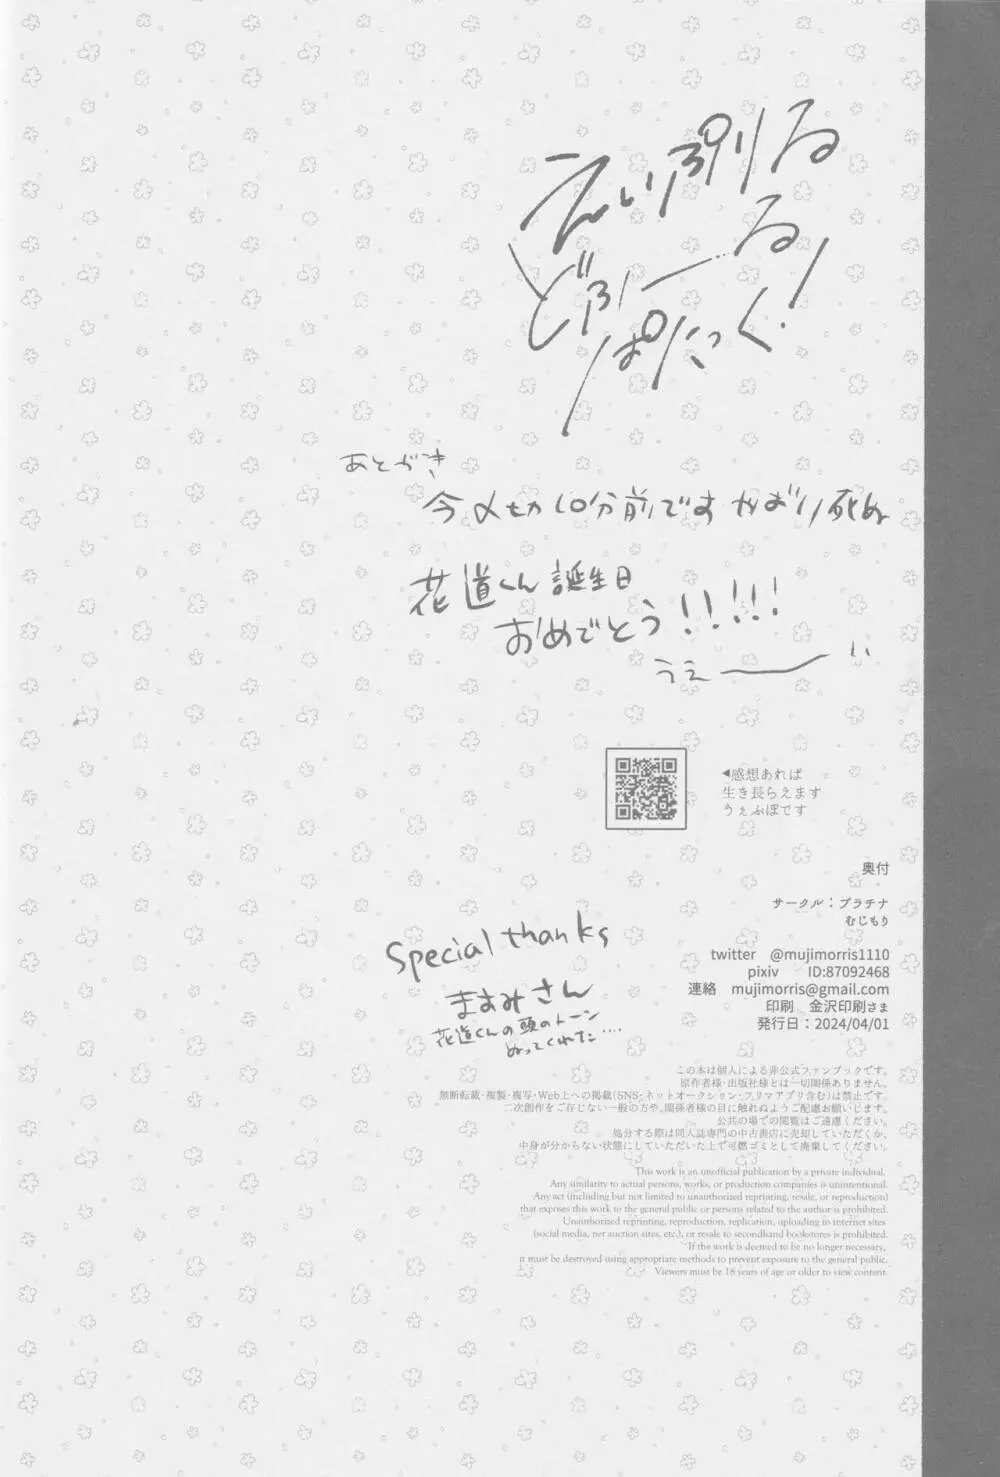 えいぷりる
どふーる
ぱにっく!
あとがき
今〆切10分前です やばい死ぬ
花道くん誕生日
おめでとう!!!!!
うえー
◀感想あれば
生き長らえます
うぇぶぽです
奥付
サークル：プラチナ
むじもり
twitter @mujimorris1110
pixiv ID:87092468
連絡 mujimorris@gmail.com
印刷 金沢印刷さま
発行日：2024/04/01
Special thanks
ますみさん
花道くんの頭のトーン
ぬってくれた....
この本は個人による非公式ファンブックです。
原作者様・出版社様とは一切関係ありません。
無断転載・複製・複写・Web上への掲載(SNS・ネットオークション・フリマアプリ含む)は禁止です。
二次創作をご存じない一般の方や、関係者様の目に触れぬようご配慮お願いします。
公共の場での閲覧はご遠慮ください。
処分する際は同人誌専門の中古書店に売却していただくか、
中身が分からない状態にしていただいた上で可燃ゴミとして廃棄してください。
This work is an unofficial publication by a private individual.
Any similarity to actual persons, works, or production companies is unintentional.
Any act (including but not limited to unauthorized reprinting, resale, or reproduction)
that exposes this work to the general public or persons related to the author is prohibited.
Unauthorized reprinting, reproduction, replication, uploading to internet sites
(social media, net auction sites, etc.), or resale to secondhand bookstores is prohibited.
If the work is deemed to be no longer necessary,
it must be destroyed using appropriate methods to prevent exposure to the general public.
Viewers must be 18 years of age or older to view content.